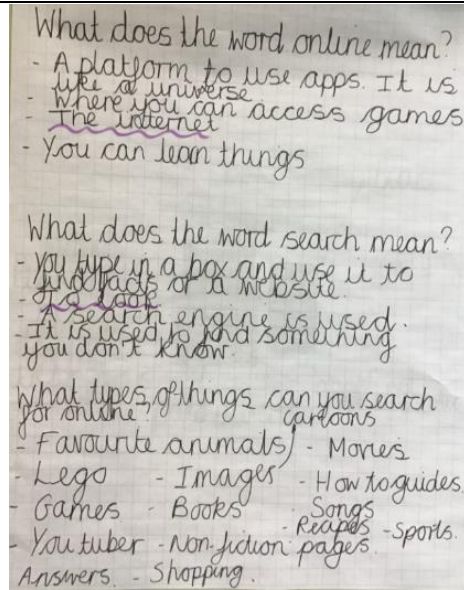 What does the word online mean?
- A platform to use apps. It is
like a universe
- Where you can access games
- The internet
- You can learn things
What does the word search mean?
- You type in a box and use it to
find facts or a website.
- To look
- A search engine is used.
- It is used to find something
you don't know.
What types of things can you search
for online?
cartoons
- Favourite animals/ - Movies
- Lego - Images - How to guides
- Games - Books - Songs
- Recipes - Sports.
- Youtuber - Non-fiction pages.
Answers. - Shopping.